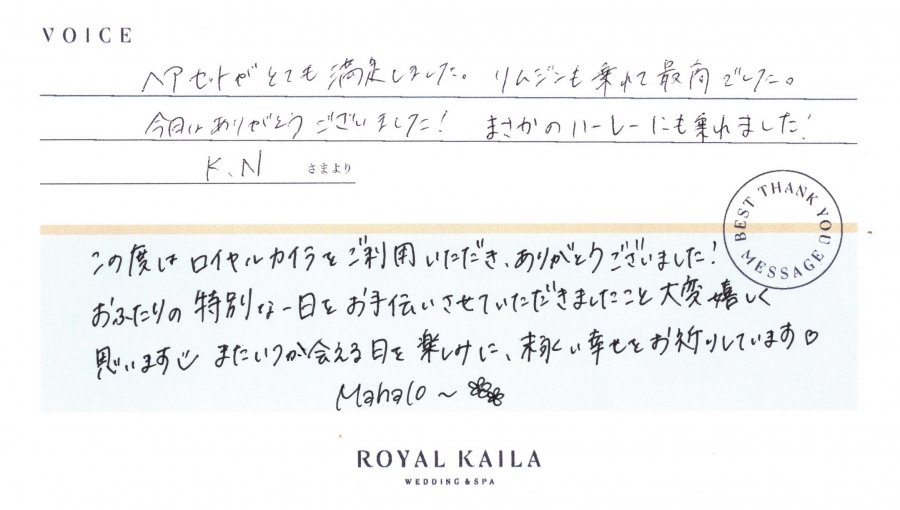 VOICE
ヘアセットがとても満足しました。 リムジンも乗れて最高でした。
今日はありがとうございました! まさかのハーレーにも乗れました!
K.N さまより
BEST THANK YOU MESSAGE
この度はロイヤルカイラをご利用いただき、ありがとうございました!
おふたりの特別な一日をお手伝いさせていただきましたこと大変嬉しく
思います またいつか会える日を楽しみに、末永い幸せをお祈りしています♡
Mahalo～
ROYAL KAILA
WEDDING & SPA